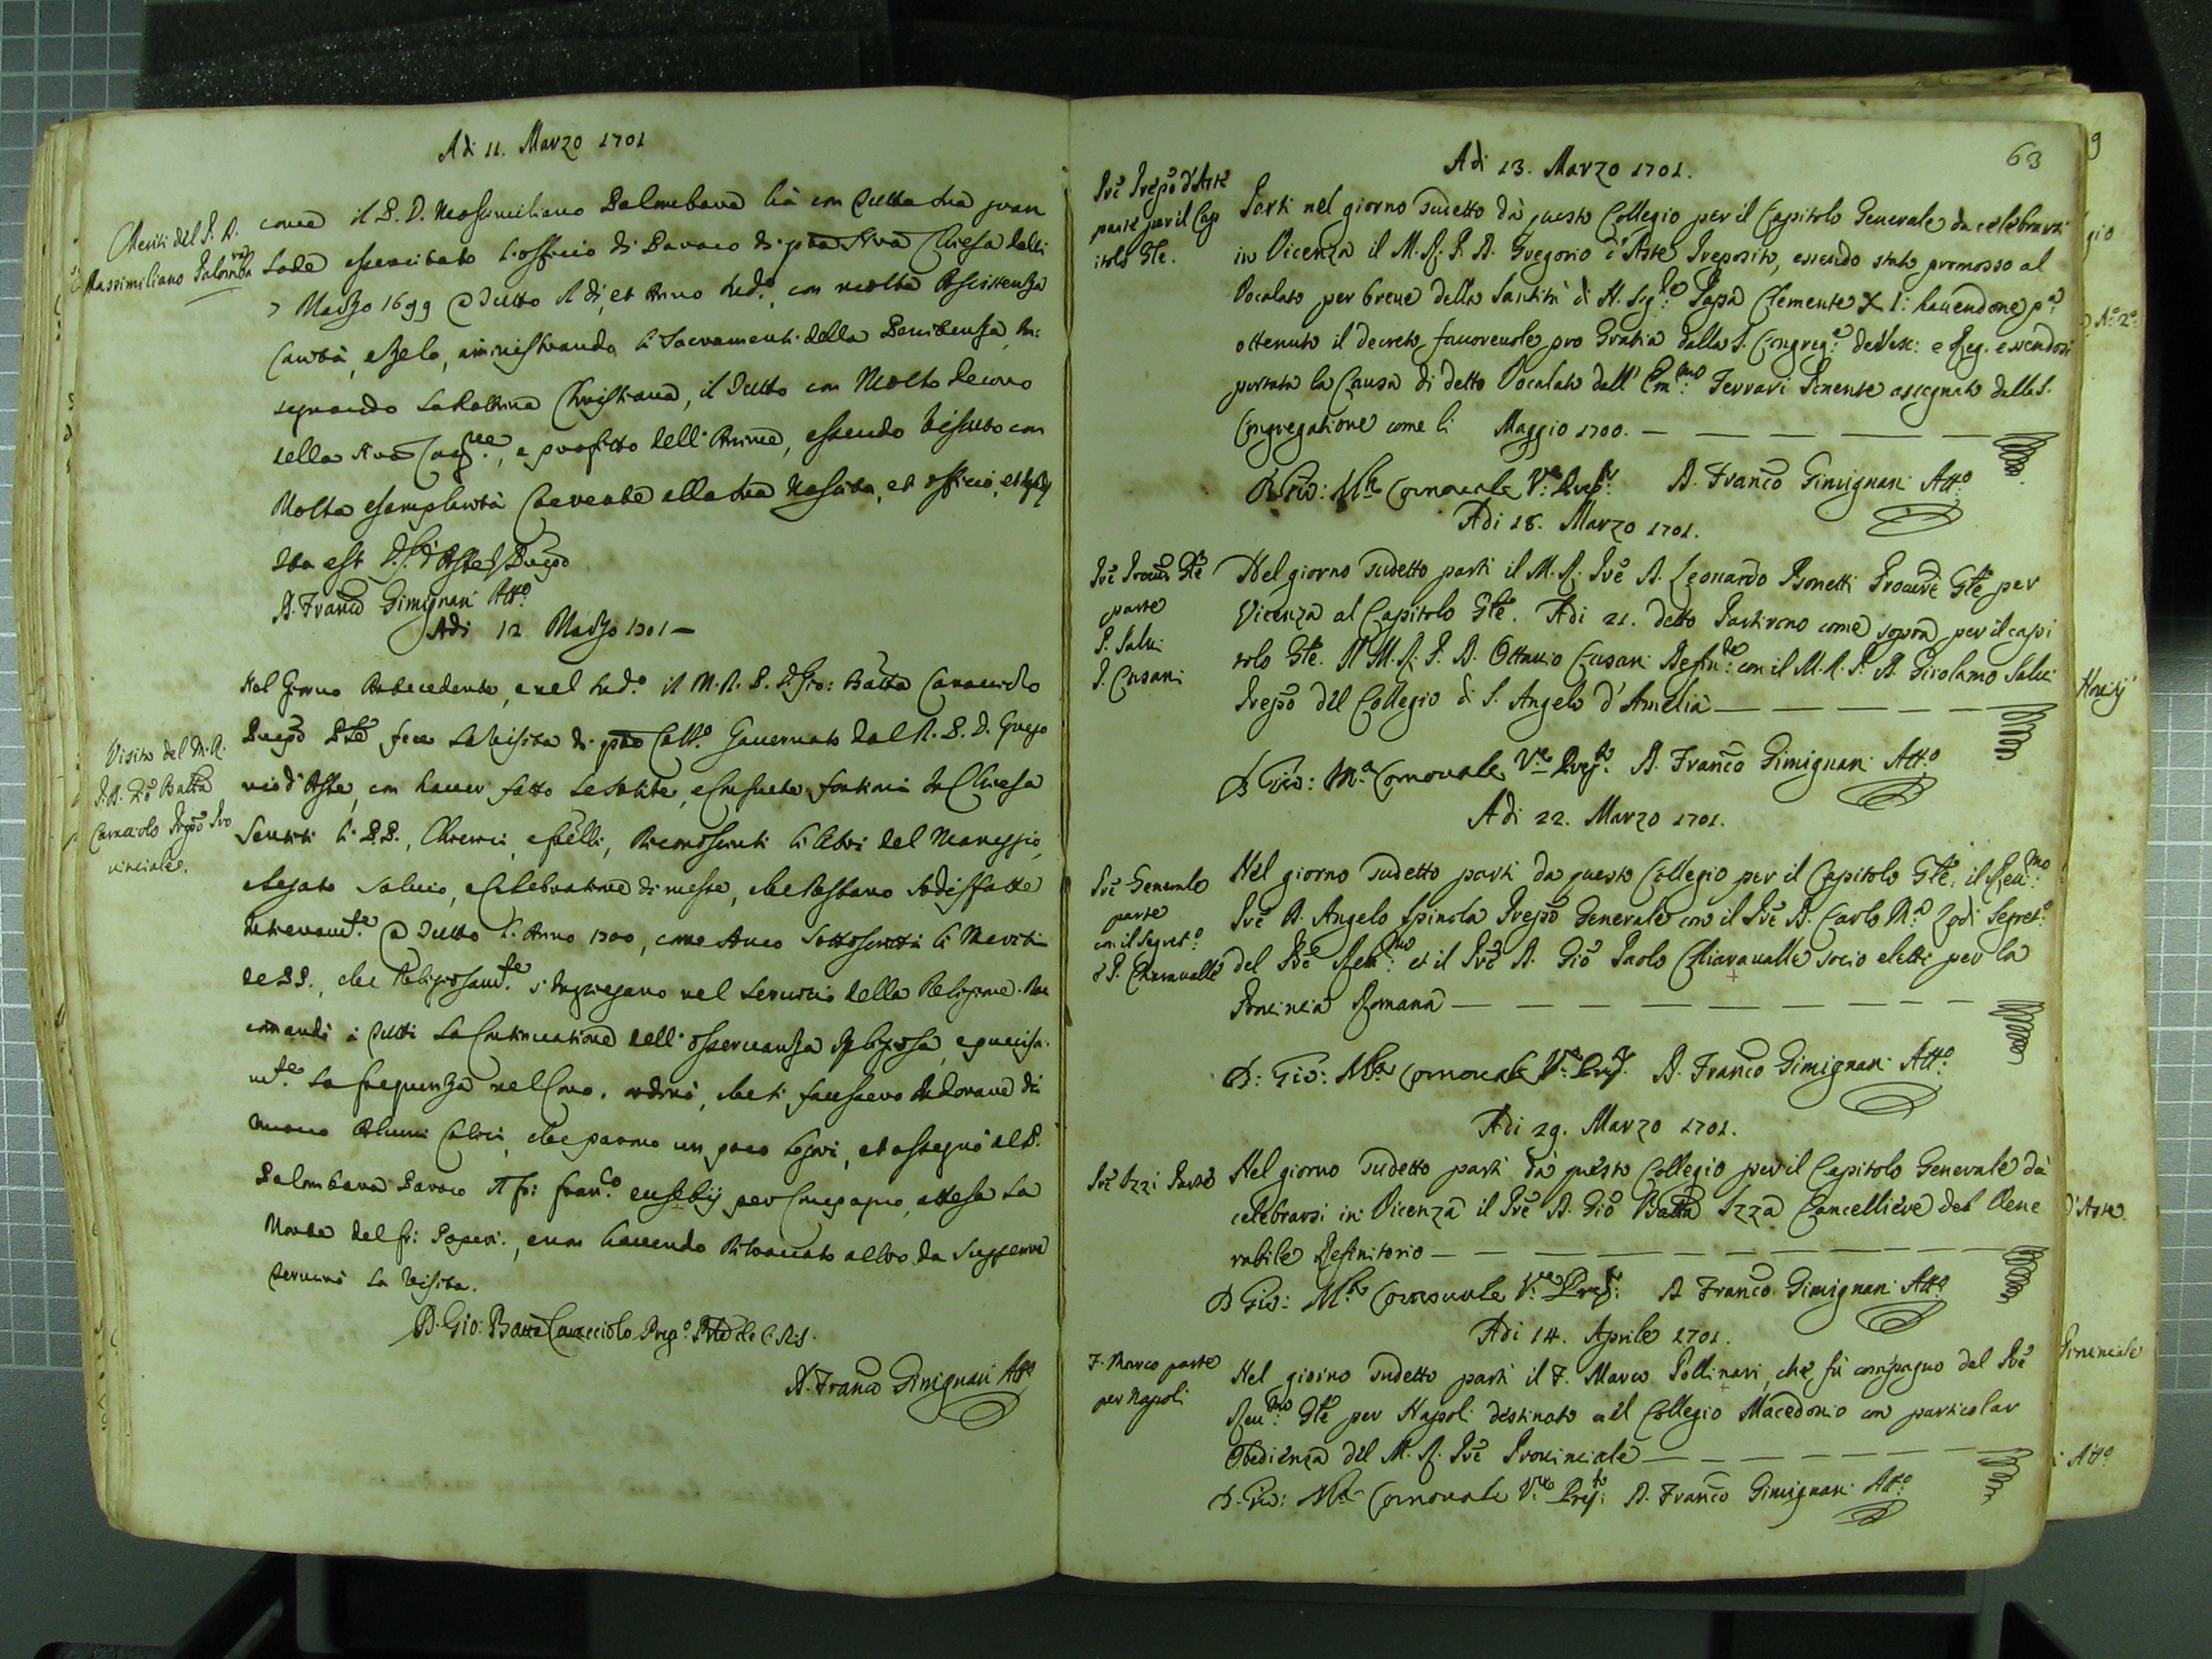 Adi 11. Marzo 1701
Meriti del P. D.
Massimiliano Palombara
come il P. D. Massimiliano Palombara hà con tutta sua gran
lode essercitato l'officio di Paroco di q̄ta N̄ra Chiesa dalli
7 Marzo 1699 @ tutto il dì, et Anno sud.º con molta Assistenza
Carità, e Zelo, aministrando li Sacramenti della Penitenza, in:
segnando la Dottrina Christiana, il tutto con Molto decoro
della N̄ra Cong.ne, e profitto dell'Anime, essendo vissuto con
Molta esemplarità Coerente alla sua Nascita, et officio, et
Ita est D. G. d'Aste Prep̄o
D. Franc̄o Gimignani Att.º
Adi 12 Marzo 1701 —
Visita del M. R.
P. D. Giō Batt̄a
Caracciolo Prep̄o Pro
vinciale.
Nel Giorno Antecedente, e nel sud.º il M. R. P. D. Gio: Batt̄a Caracciolo
Prep̄o P̄le fece la visita di q̄to Coll.º Gouernato dal R. P. D. Grego
rio d'Aste, con hauer fatto le solite, e Consuete fontioni in Chiesa
Sentiti li PP., Chierici, e f̄elli, Riconosciuti li libri del Maneggio,
e legato Saluio, e Celebratione di messe, che restano sodisfatte
intieram.te @ tutto l'Anno 1700, come Anco sottoscritti li Meriti
de PP., che Religiosam.te s'impiegano nel seruitio della Religione. Rac
comandò à tutti la Continuatione dell'osseruanza Religiosa, e precisa.
m.te la frequenza nel Coro. ordinò, che si facessero indorare di
nuouo Alcuni Calici, che parono un poco logori, et assegnò al P.
Palombara Paroco il fr: Fran.co Eusebij per Compagno, attesa la
Morte del fr: , e non hauendo Ritrouato altro da Supplire
terminò la visita.
D. Gio: Batt̄a Caracciolo Prep.º P̄le de C. R. S.
D. Franc̄o Gimignani Att.º
63
Adi 13. Marzo 1701.
P̄rē Prep̄o d'Aste
parte per il Cap
itolo G̅le.
Partì nel giorno sudetto dà questo Collegio per il Capitolo Generale da celebrarsi
in Vicenza il M. R. P. D. Gregorio d'Aste Preposito, essendo stato promosso al
Vocalato per breue della Santità di N. Sig.re Papa Clemente XI: hauendone p.a
ottenuto il decreto fauoreuole pro Gratia dalla S. Congreg.e de Vesc: e Reg. essendosi
portata la Causa di detto Vocalato dall'Em.mo Ferrari Ponente assegnato dalla S.
Congregatione come li Maggio 1700. —
D. Gio: M.a Cornouale V.e Prep.to D. Franc̄o Gimignani Att.º
Adi 18. Marzo 1701.
P̄rē Procur̄ G̅le
parte
P. Salui
P. Cusani
Nel giorno sudetto partì il M. R. P̄rē D. Leonardo Bonetti Procur̄e G̅le per
Vicenza al Capitolo G̅le. Adi 21. detto Partirono come sopra per il capi
tolo G̅le. Il M. R. P. D. Ottauio Cusani Defin.re con il M. R. P. D. Girolamo Salui
Prep̄o del Collegio di S. Angelo d'Amelia —
D. Gio: M.a Cornouale V.e Prep.to D. Franc̄o Gimignani Att.º
Adi 22. Marzo 1701.
P̄rē Generale
parte
con il Segret.º
e P. Chiaravalle
Nel giorno sudetto partì da questo Collegio per il Capitolo G̅le. il Reu.mo
P̄rē D. Angelo Spinola Prep̄o Generale con il P̄rē D. Carlo M.a Lodi Segret.º
del P̄rē Reu.mo et il P̄rē D. Giō Paolo Chiaraualle socio eletti per la
Prouincia Romana —
D: Gio: M.a Cornouale V.e Prep. D. Franc̄o Gimignani Att.º
Adi 29. Marzo 1701.
P̄rē Izzi Parte
Nel giorno sudetto partì dà questo Collegio per il Capitolo Generale dà
celebrarsi in Vicenza il P̄rē D. Giō Batt̄a Izza Cancelliere del Vene
rabile Definitorio —
D. Gio: M.a Cornouale V.e Prep.to D. Franc̄o Gimignani Att.º
Adi 14. Aprile 1701.
F. Marco parte
per Napoli
Nel giorno sudetto partì il F. Marco Pollinari, che fù compagno del P̄rē
Reu.mo G̅le per Napoli destinato al Collegio Macedonio con particolar
Obedienza del M. R. P̄rē Prouinciale —
D. Gio: M.a Cornouale V.e Prep.to D. Franc̄o Gimignani Att.º